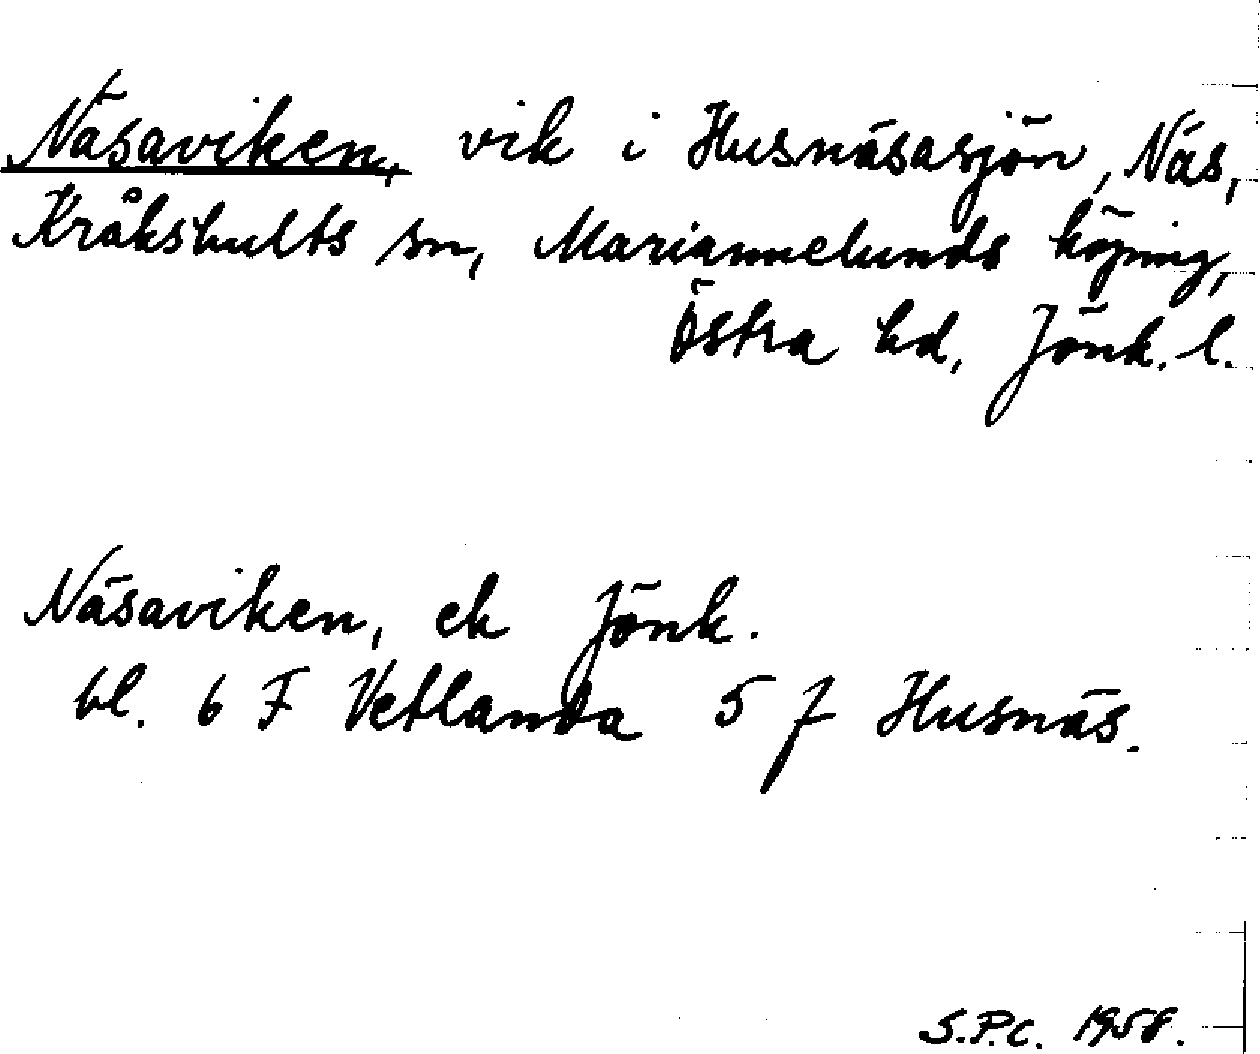 Näsaviken, vik i Husnäsasjön, Näs,
Kråkshults sn, Mariannelunds köping,
Östra hd, Jönk. l.
Näsaviken, ek Jönk.
bl. 6 F Vetlanda 5 f Husnäs.
S.P.C. 1958.